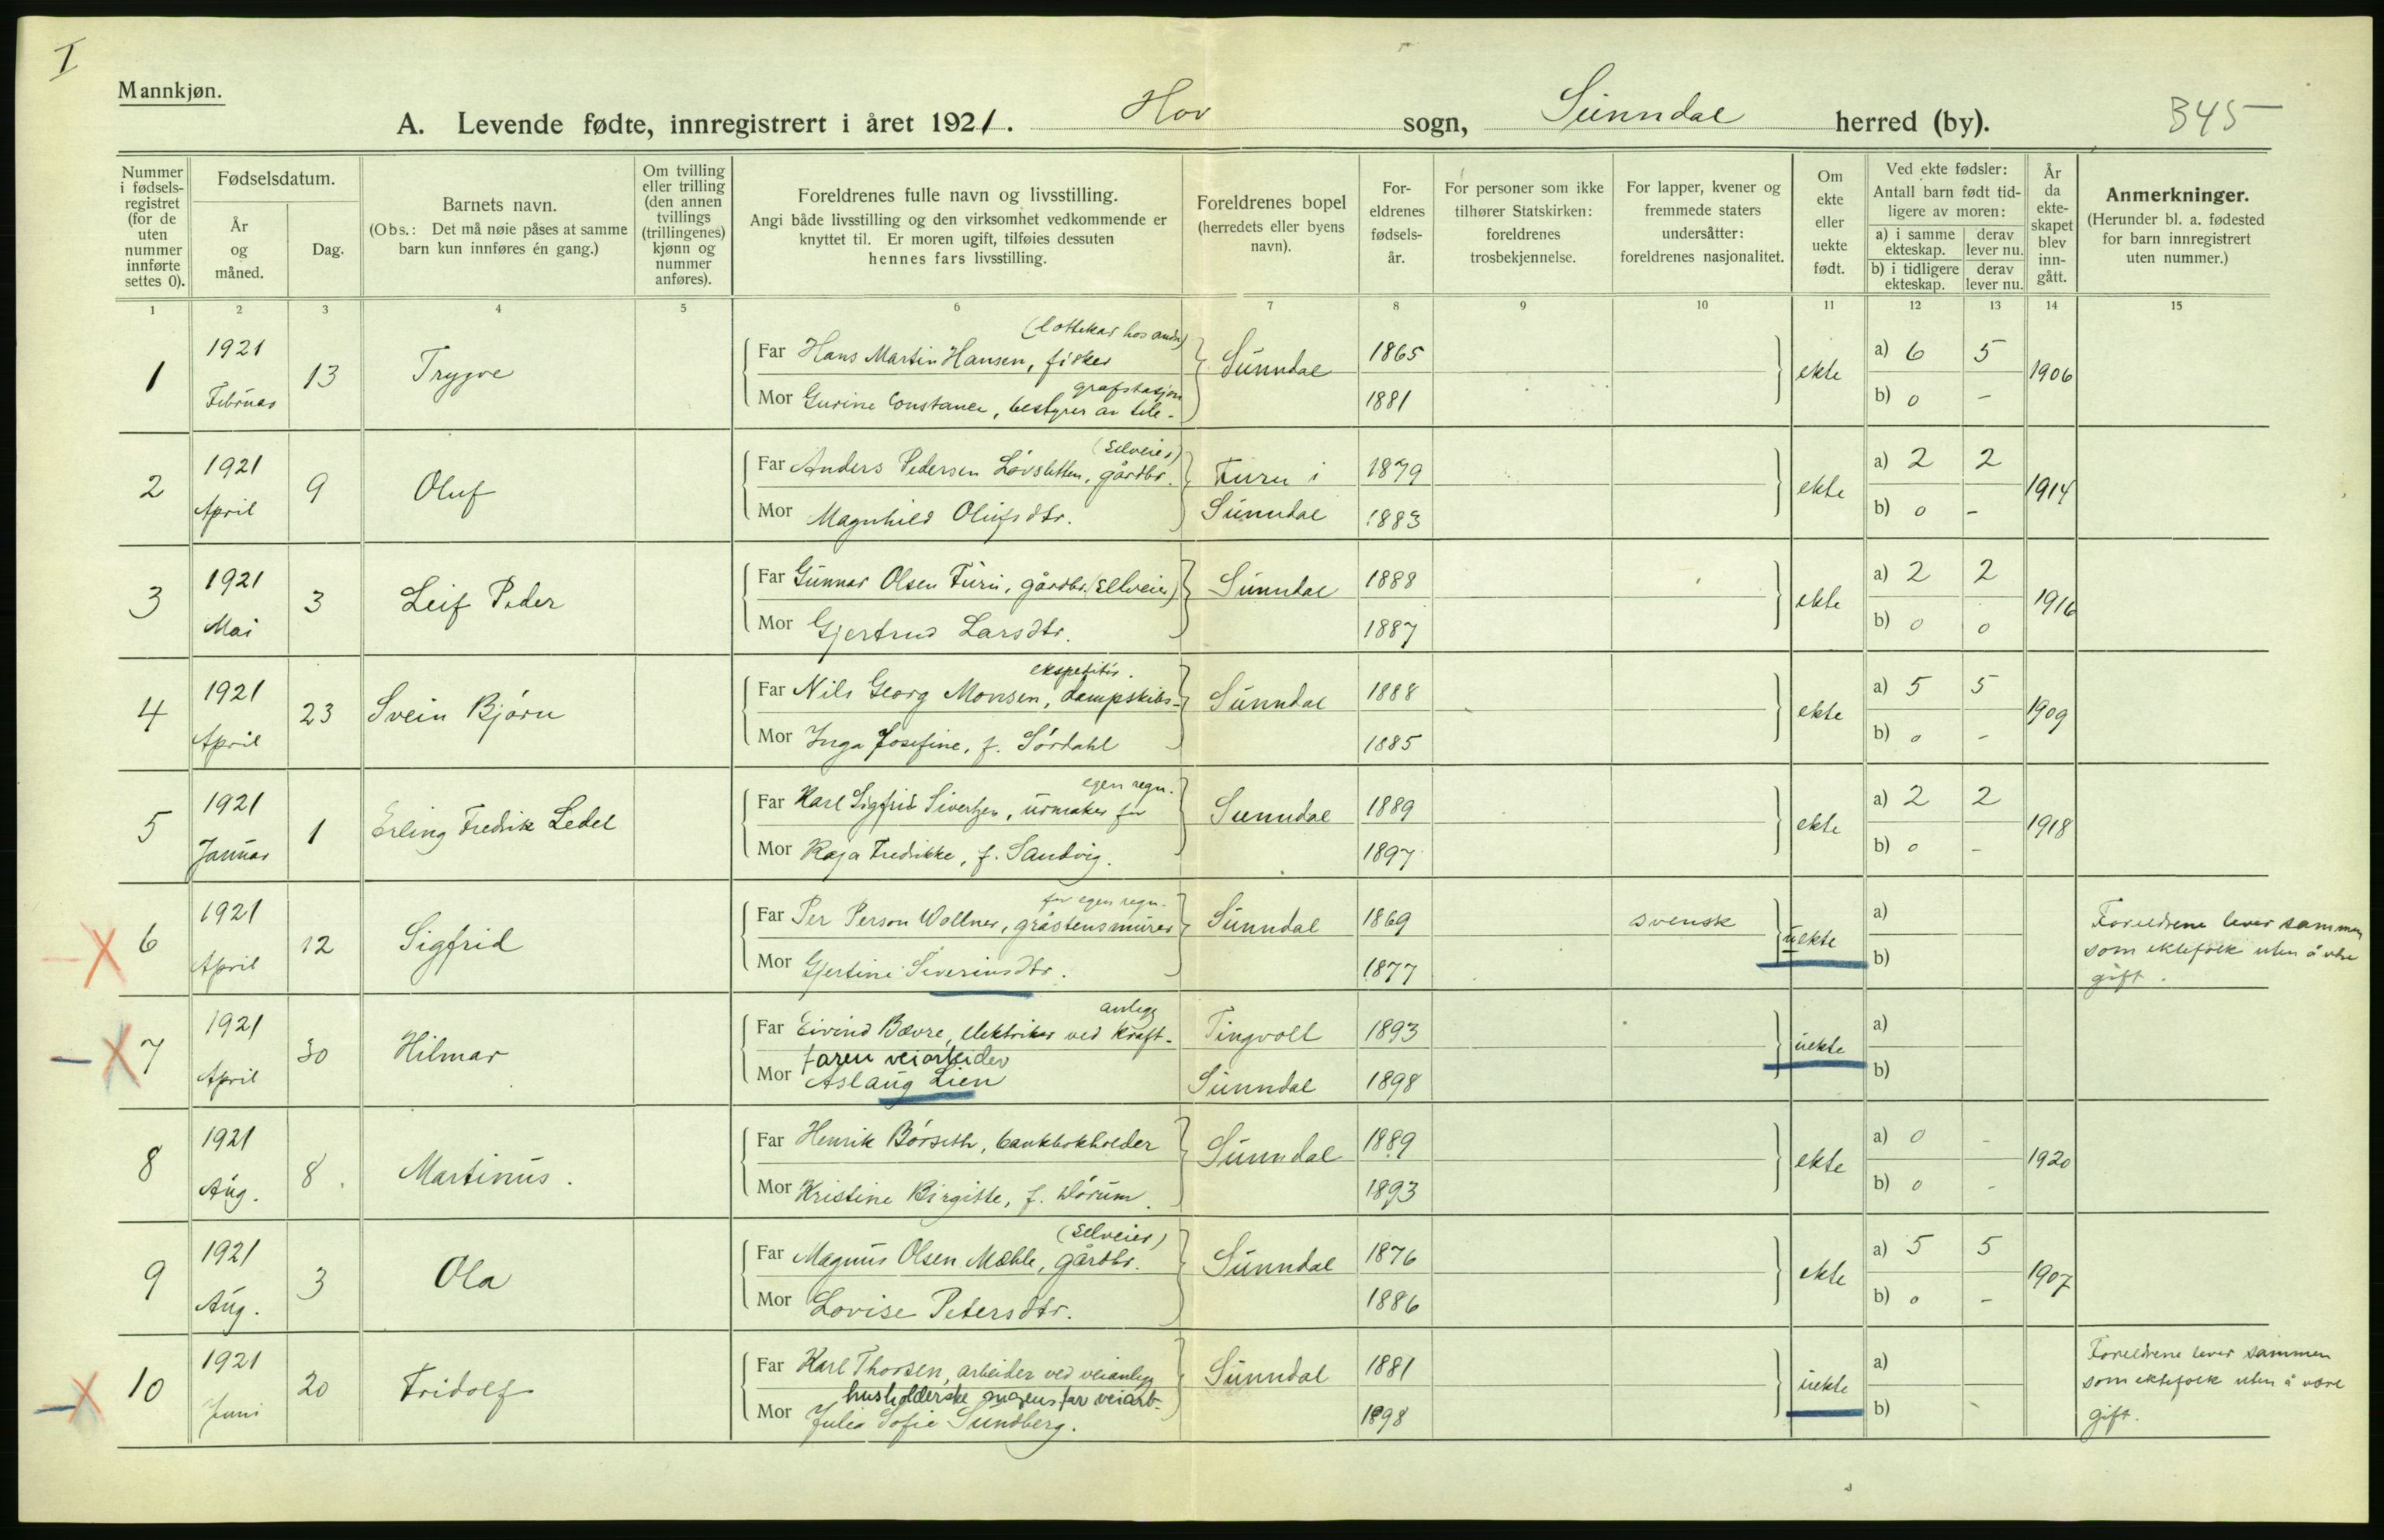 I
Mannkjøn.
A. Levende fødte, innregistrert i året 1921. Hov sogn, Sunndal herred (by). 345
Nummer i fødsels-registret (for de uten nummer innførte settes 0).
Fødselsdatum.
År og måned.
Dag.
Barnets navn.
(Obs.: Det må nøie påses at samme barn kun innføres én gang.)
Om tvilling eller trilling (den annen tvillings (trillingenes) kjønn og nummer anføres).
Foreldrenes fulle navn og livsstilling.
Angi både livsstilling og den virksomhet vedkommende er knyttet til. Er moren ugift, tilføies dessuten hennes fars livsstilling.
Foreldrenes bopel (herredets eller byens navn).
For-eldrenes fødsels-år.
For personer som ikke tilhører Statskirken: foreldrenes trosbekjennelse.
For lapper, kvener og fremmede staters undersåtter: foreldrenes nasjonalitet.
Om ekte eller uekte født.
Ved ekte fødsler:
Antall barn født tid-ligere av moren:
a) i samme ekteskap. derav lever nu.
b) i tidligere ekteskap. derav lever nu.
År da ekte-skapet blev inn-gått.
Anmerkninger.
(Herunder bl. a. fødested for barn innregistrert uten nummer.)
1 2 3 4 5 6 7 8 9 10 11 12 13 14 15
1 1921 Februar 13 Trygve
(lottekar hos andre)
Far Hans Martin Hansen, fisker Sunndal 1865 ekte a) 6 5 1906
grafstasjon
Mor Gurine Constance, bestyrer av tele- 1881 b) 0 -
2 1921 April 9 Oluf
(selveier)
Far Anders Pedersen Løvsletten, gårdbr. Furu i 1879 ekte a) 2 2 1914
Mor Magnhild Olufsdtr. Sunndal 1883 b) 0 -
3 1921 Mai 3 Leif Peder
Far Gunnar Olsen Furu, gårdbr. (selveier) Sunndal 1888 ekte a) 2 2 1916
Mor Gjertrud Larsdtr. 1887 b) 0 0
4 1921 April 23 Svein Bjørn
ekspeditør.
Far Nils Georg Monsen, dampskibs- Sunndal 1888 ekte a) 5 5 1909
Mor Inga Josefine, f. Sørdahl 1885 b) 0 -
5 1921 Januar 1 Erling Fredrik Ledel
egen regn.
Far Karl Sigfrid Sivertsen, urmaker for Sunndal 1889 ekte a) 2 2 1918
Mor Kaja Fredrikke, f. Sandvig. 1897 b) 0 -
6 1921 April 12 Sigfrid
for egen regn.
Far Per Person Wollner, gråstensmurer Sunndal 1869 svensk uekte a)
Mor Gjertine Severinsdtr. 1877 b)
Foreldrene lever sammen
som ektefolk uten å være
gift.
7 1921 April 30 Hilmar
anlegg
Far Eivind Bævre, elektriker ved kraft- Tingvoll 1893 uekte a)
faren veiarbeider
Mor Aslaug Lien Sunndal 1898 b)
8 1921 Aug. 8. Martinus.
Far Henrik Børseth, bankbokholder Sunndal 1889 ekte a) 0 - 1920
Mor Kristine Birgitte, f. Hørum. 1893 b) 0 -
9 1921 Aug. 3 Ola
(selveier)
Far Magnus Olsen Mæhle, gårdbr. Sunndal 1876 ekte a) 5 5 1907
Mor Lovise Petersdtr. 1886 b) 0 -
10 1921 Juni 20 Fridolf
Far Karl Thorsen, arbeider ved veianlegg Sunndal 1881 uekte a)
husholderske pigens far veiarb.
Mor Julia Sofie Sundberg. 1898 b) -
Foreldrene lever sammen
som ektefolk uten å være
gift.